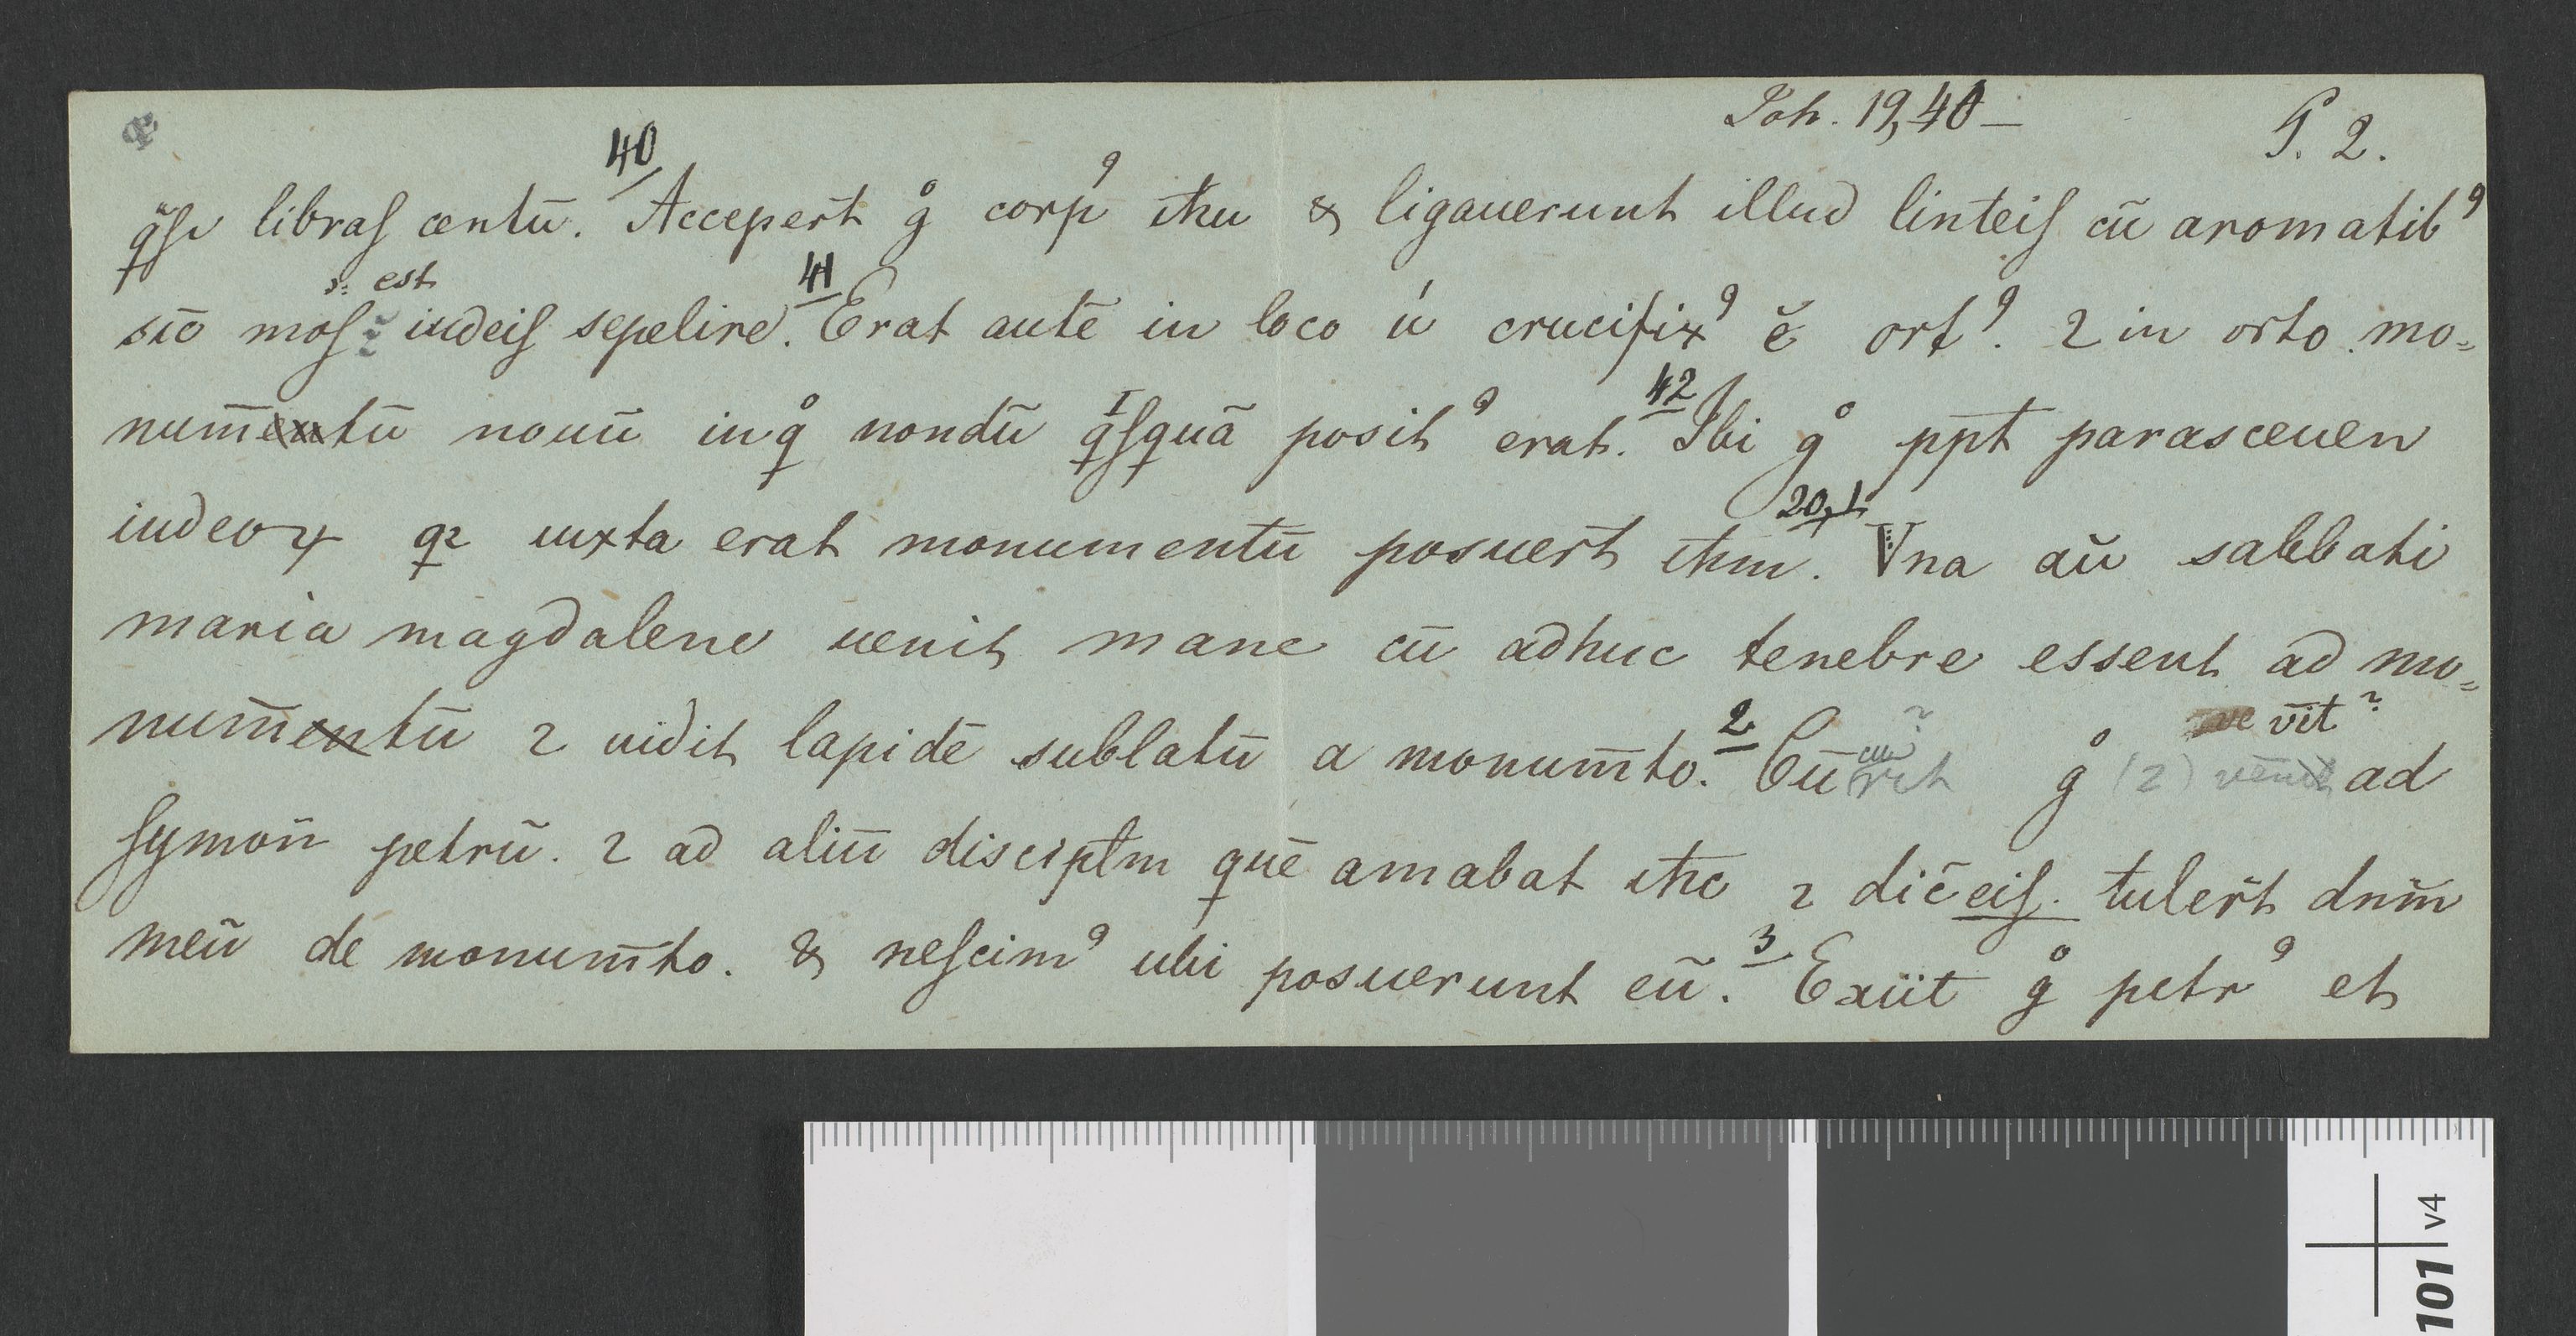 Joh. 19,40 – P. 2.
40
qͣſi libraſ centū. Accepert̄ gͦ corpꝰ ih̄u & ligauerunt illud linteiſ cū aromatibꝰ
s: est 41
sic̄ moſ iudeiſ sepelire. Erat autē in loco u̍ crucifixꝰ ē ortꝰ. ⁊ in orto mo=
I 42
num̄entū nouū inqͦ nondū qſquā positꝰ erat. Ibi gͦ ppt̄ parasceuen
20,1
iudeoꝝ qꝛ iuxta erat monumentū posuert̄ ih̄m. Vna aū sabbati
maria magdalene uenit mane cū adhuc tenebre essent ad mo=
2 ve v̄it?
num̄entū ⁊ uidit lapidē sublatū a monum̄to. Cū rit gͦ (⁊) vēnit ad
ſymoñ petrū. ⁊ ad aliū discipl̄m quē amabat ih̄c ⁊ dic̄ eiſ. tulert̄ dnm̄
3
meū de monum̄to. & neſcimꝰ ubi posuerunt eū. Exiit gͦ petrꝰ et
101 v4